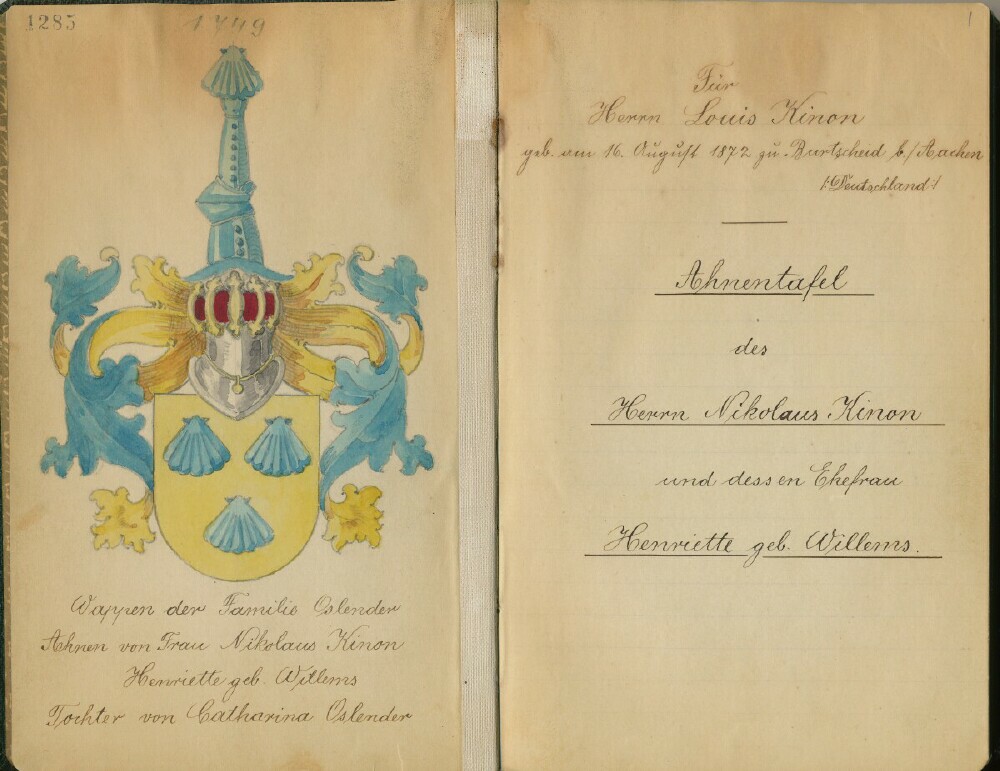 1285
1749
Wappen der Familie Oslender
Ahnen von Frau Nikolaus Kinon
Henriette geb. Willems
Tochter von Catharina Oslender
1
Für
Herrn Louis Kinon
geb. am 16. August 1872 zu Burtscheid b/Aachen
/:Deutschland:/
Ahnentafel
des
Herrn Nikolaus Kinon
und dessen Ehefrau
Henriette geb. Willems.